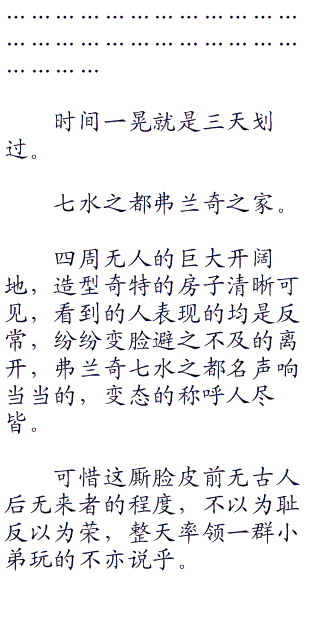 …………………………………
…………………………………
…………
时间一晃就是三天划
过。
七水之都弗兰奇之家。
四周无人的巨大开阔
地，造型奇特的房子清晰可
见，看到的人表现的均是反
常，纷纷变脸避之不及的离
开，弗兰奇七水之都名声响
当当的，变态的称呼人尽
皆。
可惜这厮脸皮前无古人
后无来者的程度，不以为耻
反以为荣，整天率领一群小
弟玩的不亦说乎。